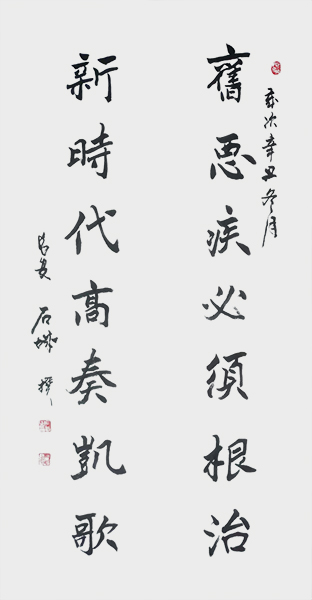 歲次辛丑冬月
舊惡疾必須根治
新時代高奏凱歌
石城 撰